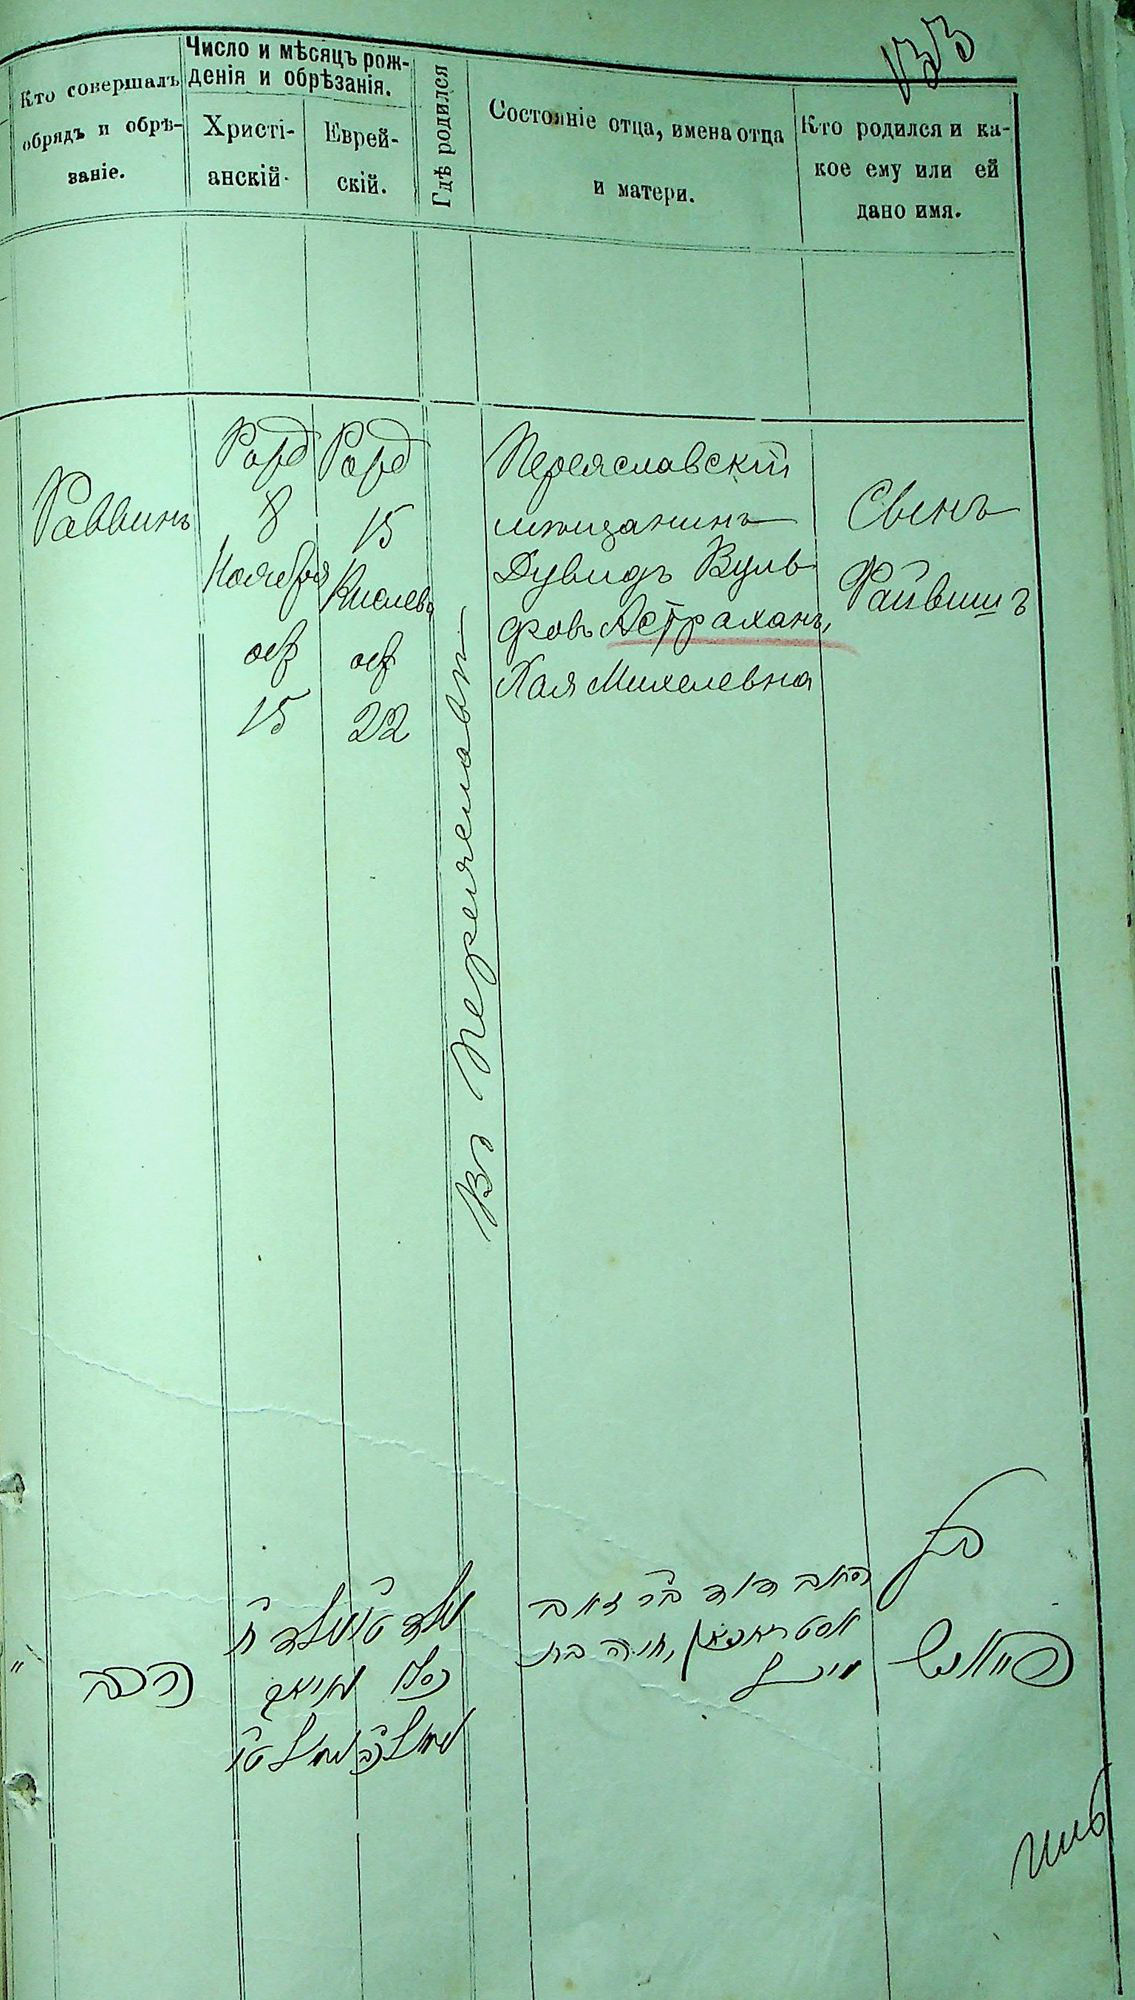 133
Кто совершалъ
обрядъ и обрѣ-
заніе.
Число и мѣсяцъ рож-
денія и обрѣзанія.
Христі-
анскій.
Еврей-
скій.
Гдѣ родился
Состояніе отца, имена отца
и матери.
Кто родился и ка-
кое ему или ей
дано имя.
Раввинъ
Рожд
8
Ноября
обр
15
Рожд
15
Кислева
обр
22
Въ Переяславѣ
Переяславскій
мѣщанинъ
Дувидъ Вуль
фовъ Астрахань,
Хая Михелевна
Сынъ
Файвишъ
הרב
נולד ח
נימול טו
נולד טו
כסלו
נימול כב
דוד בר זאב
חיה בת
מיכל
בן
פייוויש